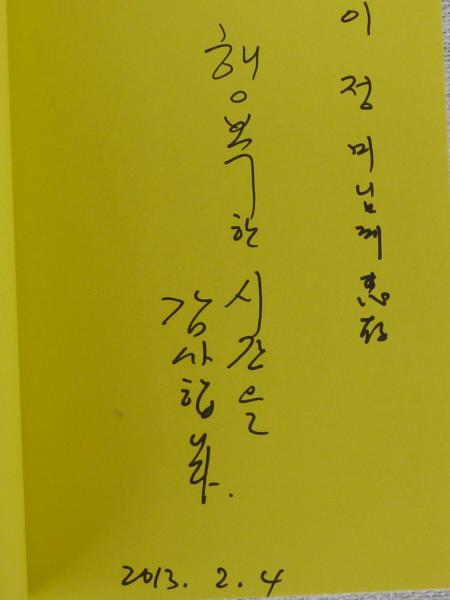 이정미님께 惠存
행복한
시간을
감사합니다.
2013. 2. 4